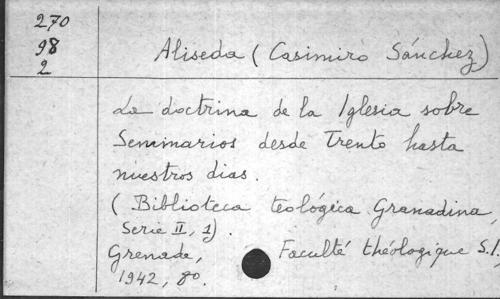 270
98
2
Aliseda (Casimiro Sánchez)
La doctrina de la Iglesia sobre
Seminarios desde Trento hasta
nuestros dias.
(Biblioteca teológica Granadina,
Serie II, 1).
Grenade, Faculté théologique S.I.,
1942, 8o.